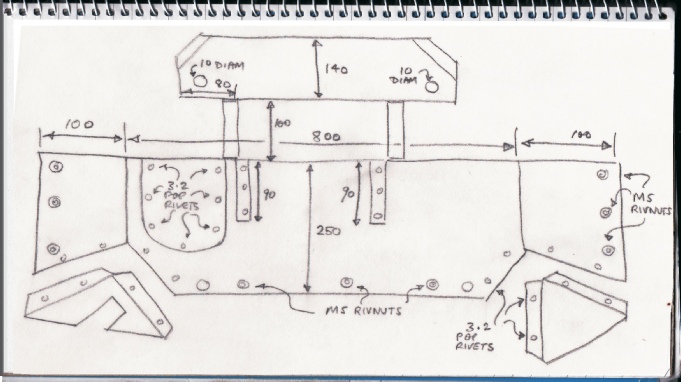 10 DIAM
80
140
10
DIAM
100
100
800
100
3.2
POP
RIVETS
90
90
250
M5
RIVNUTS
M5 RIVNUTS
3.2
POP
RIVETS